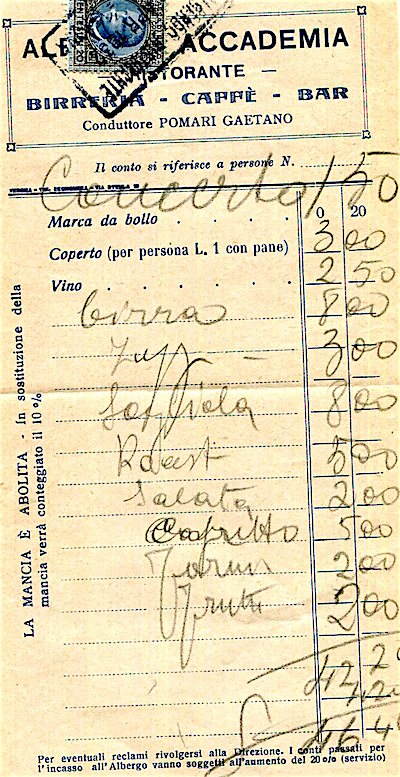 AL ACCADEMIA
STORANTE —
BIRRERIA - CAFFÈ - BAR
Conduttore POMARI GAETANO
Il conto si riferisce a persone N.
Concerto 1 50
Marca da bollo 0 20
Coperto (per persona L. 1 con pane) 3 00
Vino 2 50
birra 8 00
3 00
8 00
Roast 5 00
Salata 2 00
Capritto 5 00
2 00
Frutti 2 00
42 20
4 20
46 40
LA MANCIA È ABOLITA - In sostituzione della
mancia verrà conteggiato il 10 %
Per eventuali reclami rivolgersi alla Direzione. I conti passati per
l'incasso all'Albergo vanno soggetti all'aumento del 20 o/o (servizio)